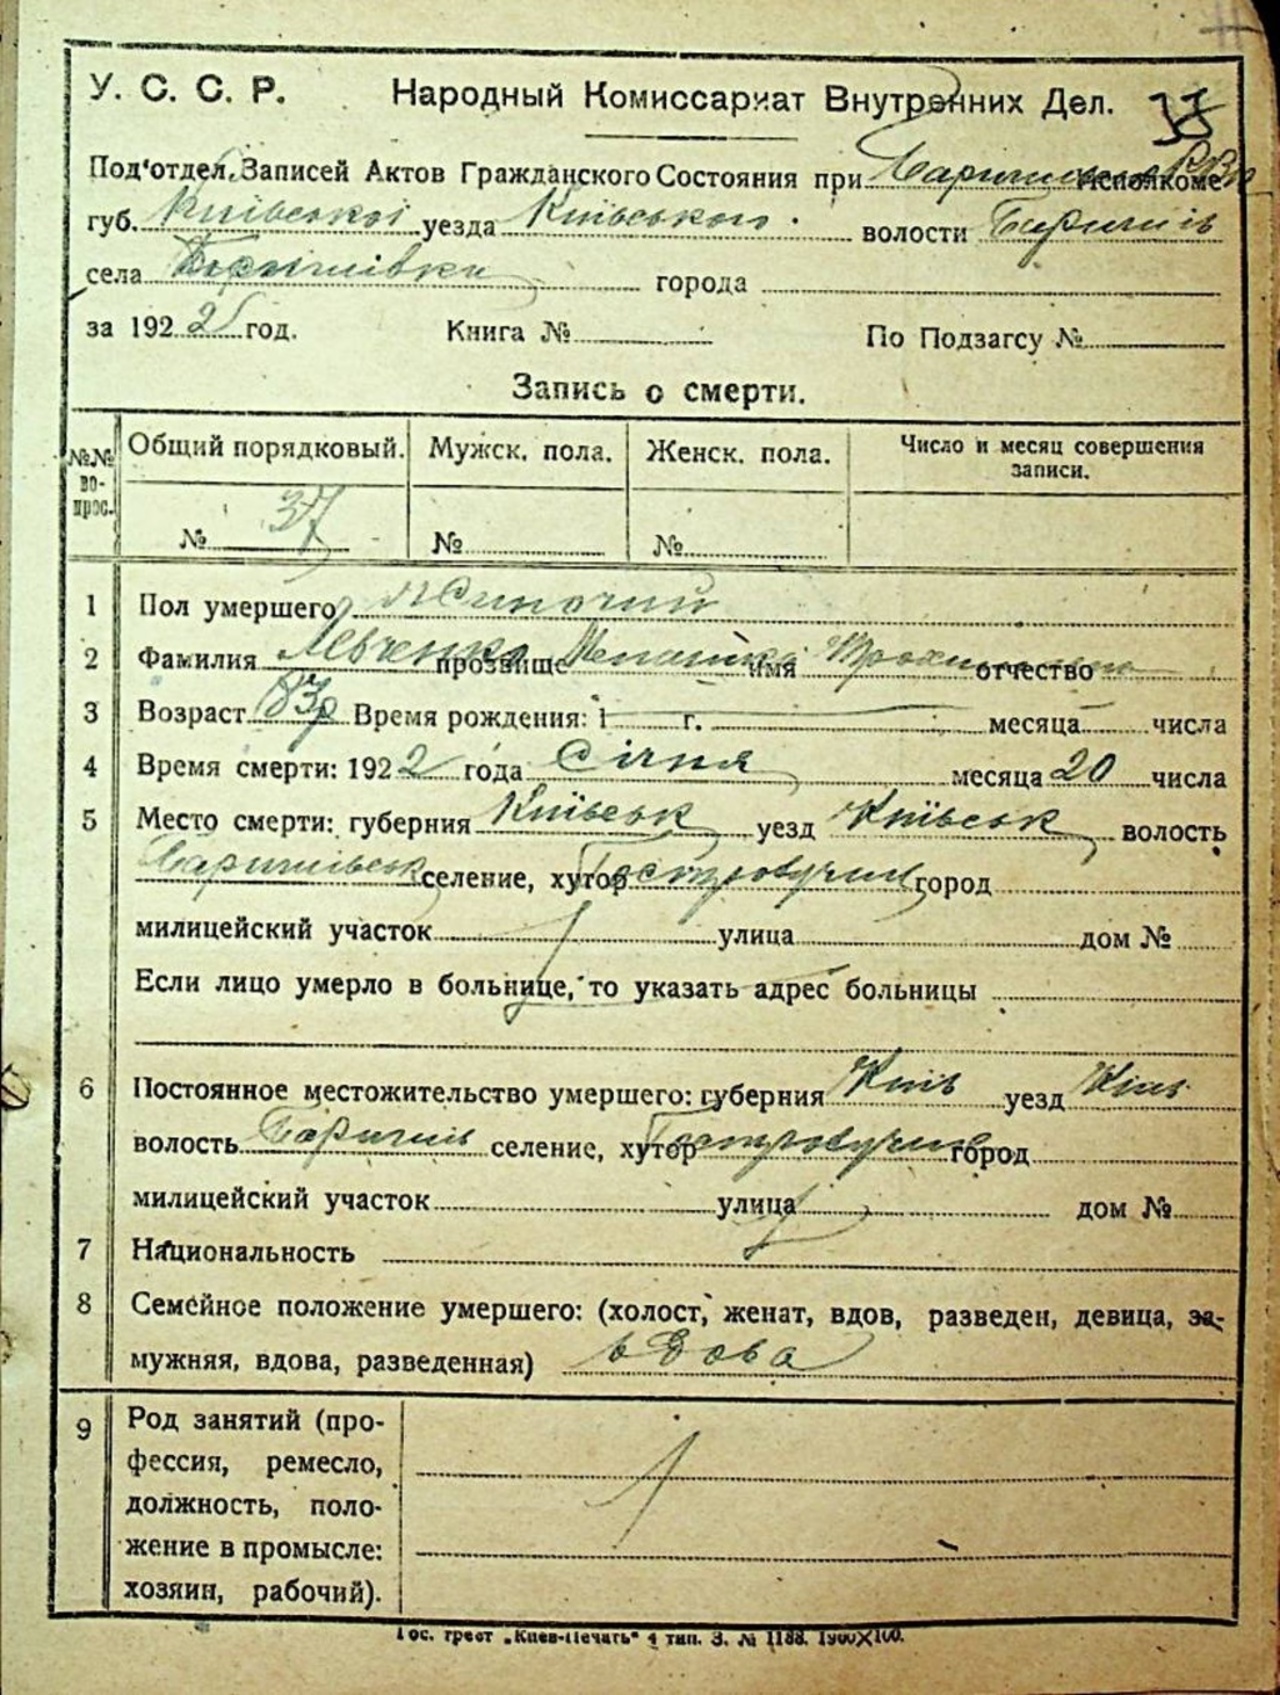 У. С. С. Р. Народный Комиссариат Внутренних Дел.
Под'отдел Записей Актов Гражданского Состояния при Исполкоме
губ. Київської уезда Київського волости Баришів
села Баришівки города
за 192 2 год. Книга № По Подзагсу №
Запись о смерти.
№№ во- прос. Общий порядковый. Мужск. пола. Женск. пола. Число и месяц совершения записи.
№ 37 № №
1 Пол умершего жиночий
2 Фамилия прозвище имя отчество
3 Возраст 83р Время рождения: 1 г. месяца числа
4 Время смерти: 192 2 года Січня месяца 20 числа
5 Место смерти: губерния Київськ уезд Київськ волость
Баришівськ селение, хутор город
милицейский участок улица дом №
Если лицо умерло в больнице, то указать адрес больницы
6 Постоянное местожительство умершего: губерния Київ уезд Київ
волость Баришів селение, хутор город
милицейский участок улица дом №
7 Национальность
8 Семейное положение умершего: (холост, женат, вдов, разведен, девица, за-
мужняя, вдова, разведенная) вдова
9 Род занятий (про-
фессия, ремесло,
должность, поло-
жение в промысле:
хозяин, рабочий).
Гос. трест „Киев-Печать“ 4 тип. З. № 1188. 1900X100.